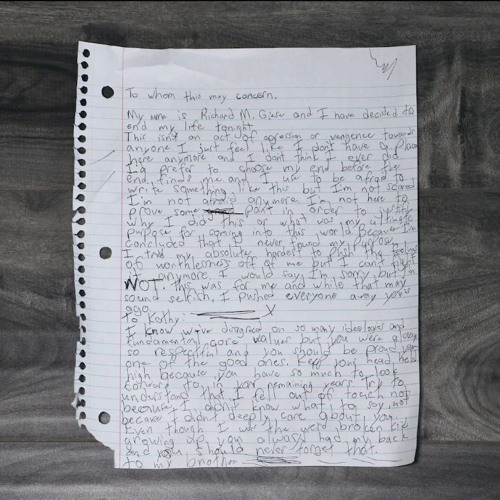 To whom this may concern,
My name is Richard M. and I have decided to
end my life tonight.
This isn't an act of aggression or vengence towards
anyone I just feel like I don't have a place
here anymore and I dont think I ever did
I'd prefer to choose my end before the
end finds me and I use to be afraid to
write something like this but I'm not scared
I'm not afraid anymore I'm not here to
prove some part in order to justify
why I did this or what was my ultimate
purpose for coming into this world Because I've
concluded that I never found my purpose
I tried my absolute hardest to push the feeling
of worthlessness off of me But I can't fight
it anymore. I would say I'm sorry but I'm
NOT, this was for me and while that may
sound selfish, I pushed everyone away years
ago
To Kathy:
I know we've disagreed on so many ideologies and
fundamental core values but you were always
so respectful and you should be proud
one of the good ones. Keep your head held
high because you have so much to look
forward to in your remaining years Try to
understand that I fell out of touch not
because I didn't know what to say, not
because I didn't deeply care about you.
Even though I was the weird broken kid
growing up you always had my back
and you should never forget that.
To my brother